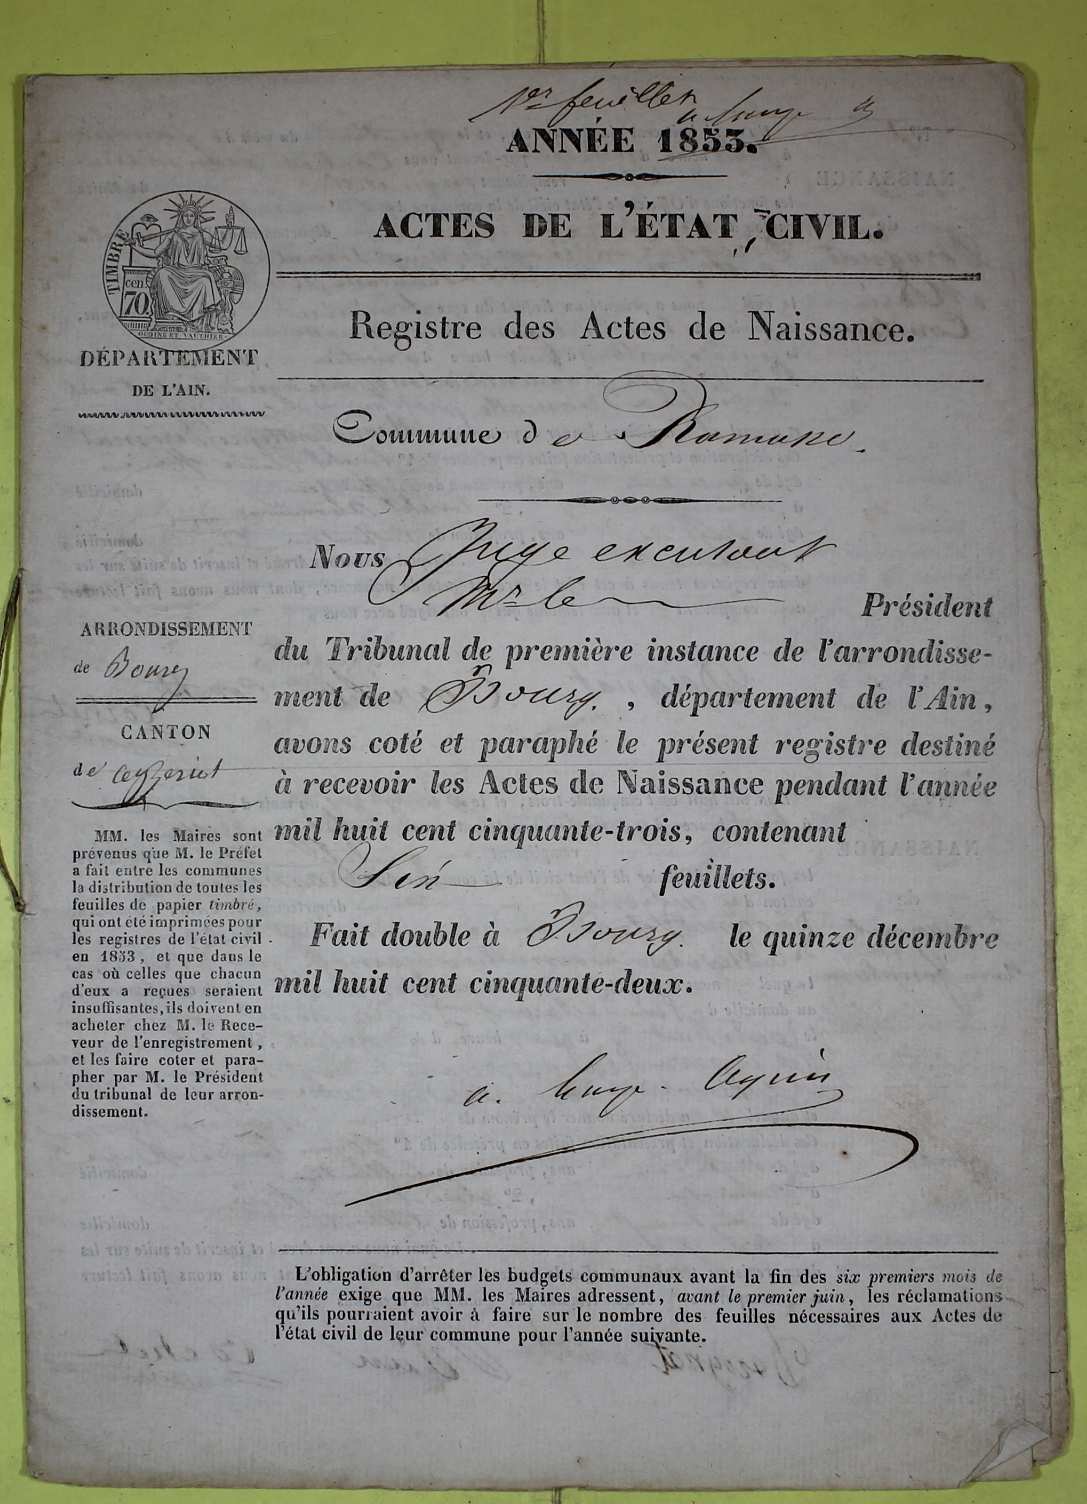 1er feuillet
ANNÉE 1853.
ACTES DE L'ÉTAT CIVIL.
TIMBRE
cen
70
OUDINÉ ET VAUTHIER
DÉPARTEMENT
DE L'AIN.
Registre des Actes de Naissance.
Commune de Ramasse.
Nous Juge
Mr le Président
du Tribunal de première instance de l'arrondisse-
ment de Bourg. , département de l'Ain,
avons coté et paraphé le présent registre destiné
à recevoir les Actes de Naissance pendant l'année
mil huit cent cinquante-trois, contenant
Six feuillets.
Fait double à Bourg. le quinze décembre
mil huit cent cinquante-deux.
ARRONDISSEMENT
de Bourg
CANTON
de Ceyzériat
MM. les Maires sont
prévenus que M. le Préfet
a fait entre les communes
la distribution de toutes les
feuilles de papier timbré,
qui ont été imprimées pour
les registres de l'état civil
en 1853, et que dans le
cas où celles que chacun
d'eux a reçues seraient
insuffisantes, ils doivent en
acheter chez M. le Rece-
veur de l'enregistrement,
et les faire coter et para-
pher par M. le Président
du tribunal de leur arron-
dissement.
L'obligation d'arrêter les budgets communaux avant la fin des six premiers mois de
l'année exige que MM. les Maires adressent, avant le premier juin, les réclamations
qu'ils pourraient avoir à faire sur le nombre des feuilles nécessaires aux Actes de
l'état civil de leur commune pour l'année suivante.